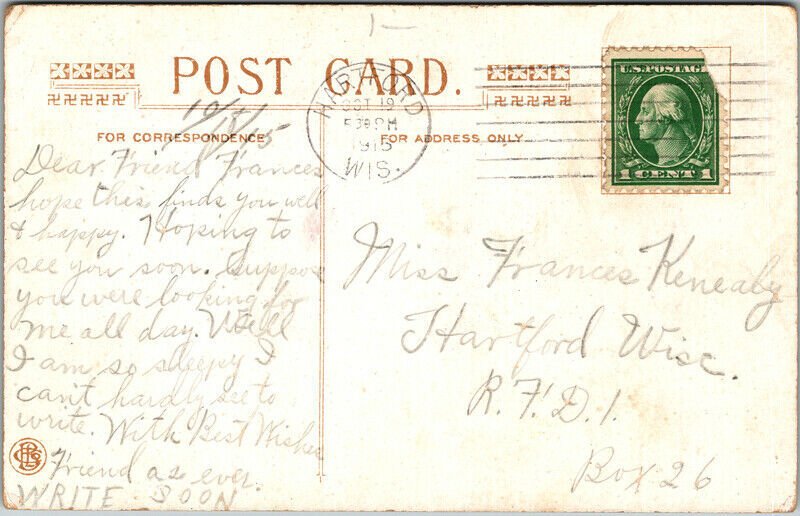 1-
POST CARD.
10/5/15
FOR CORRESPONDENCE
FOR ADDRESS ONLY
HARTFORD
OCT 19
530 PM
1915
WIS.
U.S. POSTAG
1 CENT 1
Dear Friend Frances
hope this finds you well
& happy. Hoping to
see you soon. Suppose
you were looking for
me all day. Well
I am so sleepy I
can't hardly see to
write. With Best Wishes
Friend as ever.
WRITE SOON
Miss Frances Kenealy
Hartford Wisc.
R.F.D.1
Box 26